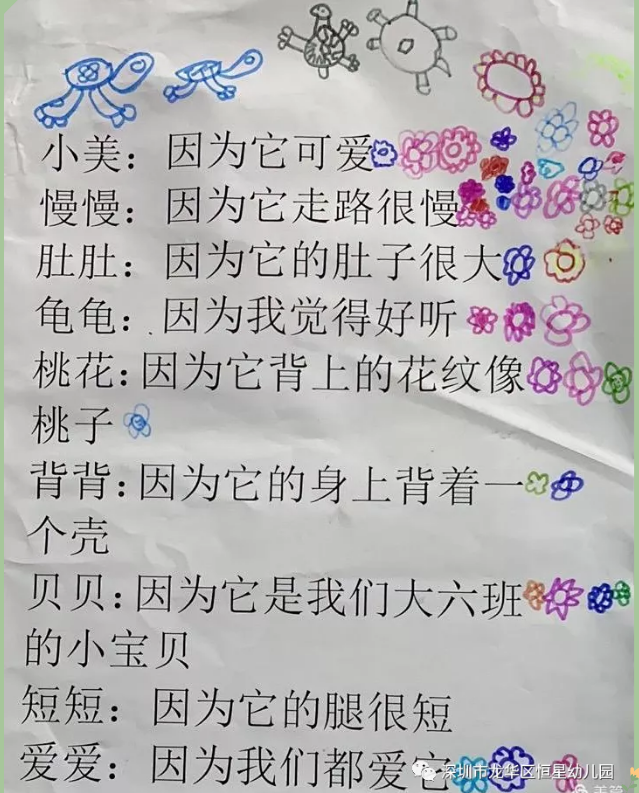 小美：因为它可爱
慢慢：因为它走路很慢
肚肚：因为它的肚子很大
龟龟：因为我觉得好听
桃花：因为它背上的花纹像
桃子
背背：因为它的身上背着一
个壳
贝贝：因为它是我们大六班
的小宝贝
短短：因为它的腿很短
爱爱：因为我们都爱它
深圳市龙华区恒星幼儿园
美篇